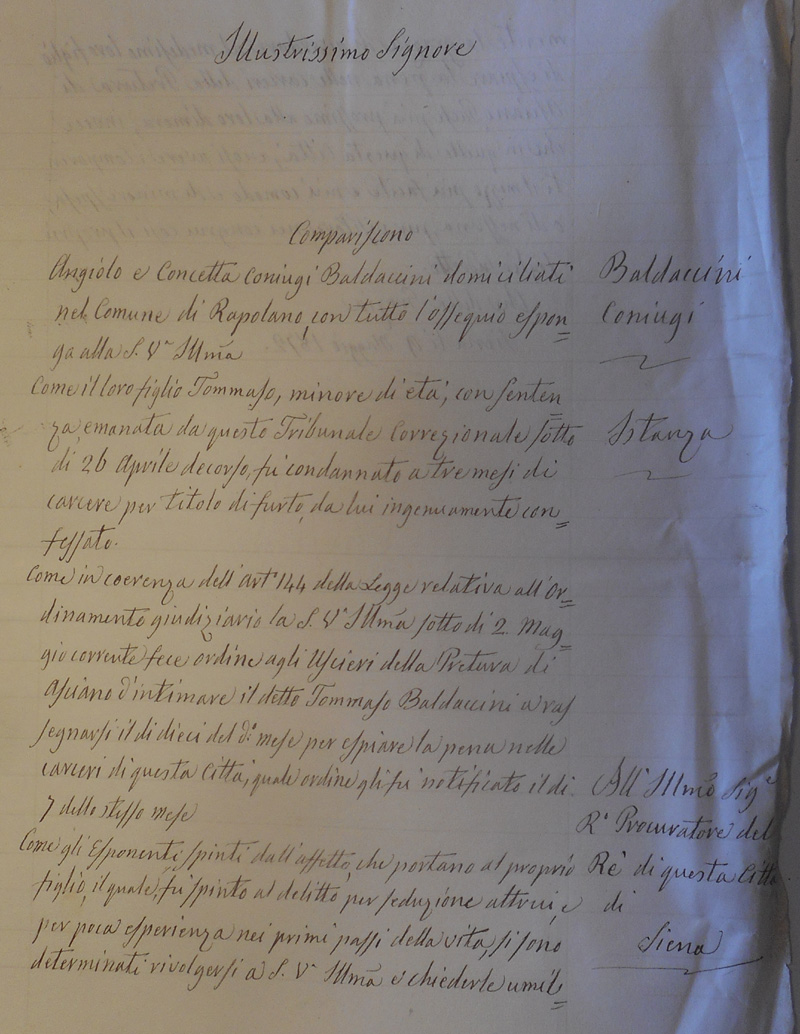 Illustrissimo Signore
Compariscono
Angiolo e Concetta Coniugi Baldaccini domiciliati
nel Comune di Rapolano, con tutto l'ossequio espon=
ga alla S. V.ª Illma
Come il loro figlio Tommaso, minore di età, con senten=
za, emanata da questo Tribunale Correzionale sotto
di 26 Aprile decorso, fù condannato a tre mesi di
carcere per titolo di furto, da lui ingenuamente con=
fessato.
Come in coerenza dell'artº 144 della Legge relativa all'Or=
dinamento giudiziario la S. V.ª Illma sotto di 2. Mag=
gio corrente fece ordine agli Uscieri della Pretura di
Asciano d'intimare il detto Tommaso Baldaccini a ras
segnarsi il di dieci del dº mese per espiare la pena nelle
carceri di questa Città, quale ordine gli fù notificato il di
7 dello stesso mese
Come gli Esponenti spinti dall'affetto, che portano al proprio
figlio, il quale, fù spinto al delitto per seduzione altrui, e
per poca esperienza nei primi passi della vita, si sono
determinati rivolgersi a S. V.ª Illma e chiederle umil=
Baldaccini
Coniugi
Istanza
All'Illmo Sigre
Rº Procuratore del
Rè di questa Città
di
Siena